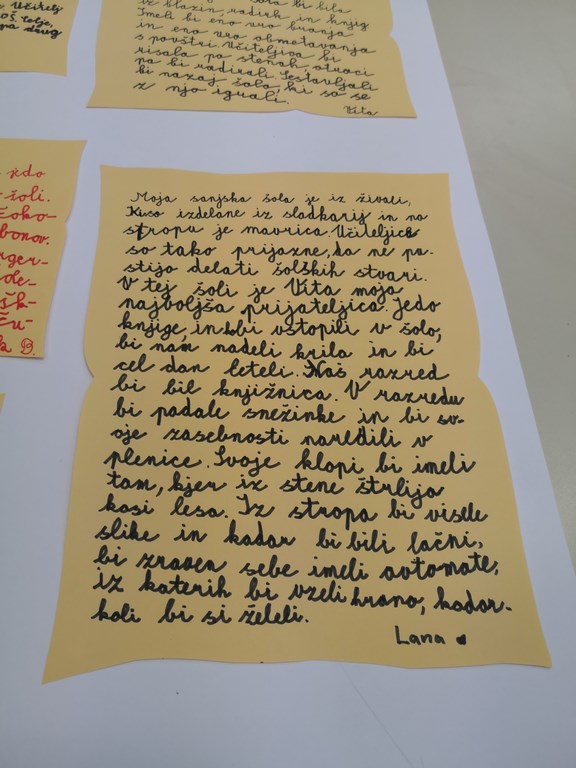 Učitelj
05. Telje,
pa drug
bi bila
iz blazin, radirk in knjig
Imeli bi eno uro branja
in eno uro obmetavanja
s površtri. Učiteljica bi
risala po stenah, otroci
pa bi radirali. Sestavljali
bi nazaj šolo, ki so se
z njo igrali.
Vita
jedo
šoli.
Čoko-
bonov.
rger-
de-
šk-
Ču-
Moja sanjska šola je iz živali,
ki so izdelane iz sladkarij in na
stropu je mavrica. Učiteljice
so tako prijazne, da ne pu-
stijo delati šolskih stvari.
V tej šoli je Vita moja
najboljša prijateljica. Jedo
knjige, in ko bi vstopili v šolo,
bi nam nadeli krila in bi
cel dan leteli. Naš razred
bi bil knjižnica. V razredu
bi padale snežinke in bi sv-
oje zasebnosti naredili v
plenice. Svoje klopi bi imeli
tam, kjer iz stene štrlijo
kosi lesa. Iz stropa bi visele
slike in kadar bi bili lačni,
bi zraven sebe imeli avtomate,
iz katerih bi vzeli hrano, kadar-
koli bi si želeli.
Lana